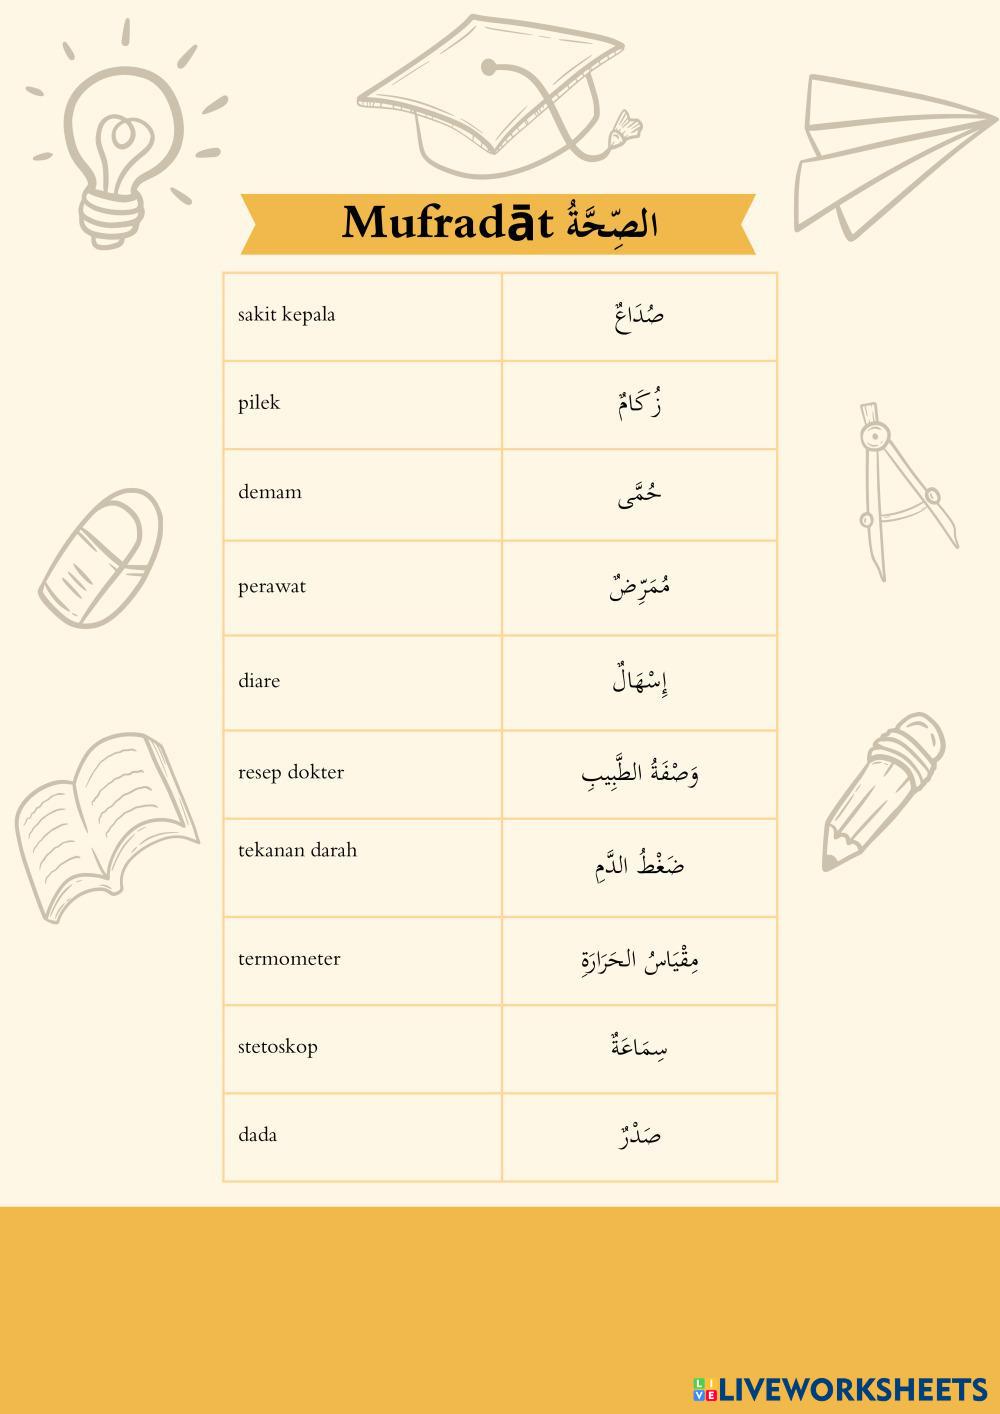 Mufradāt الصِّحَّةُ
sakit kepala صُدَاعٌ
pilek زُكَامٌ
demam حُمَّى
perawat مُمَرِّضٌ
diare إِسْهَالٌ
resep dokter وَصْفَةُ الطَّبِيبِ
tekanan darah ضَغْطُ الدَّمِ
termometer مِقْيَاسُ الحَرَارَةِ
stetoskop سِمَاعَةٌ
dada صَدْرٌ
LIVE LIVEWORKSHEETS